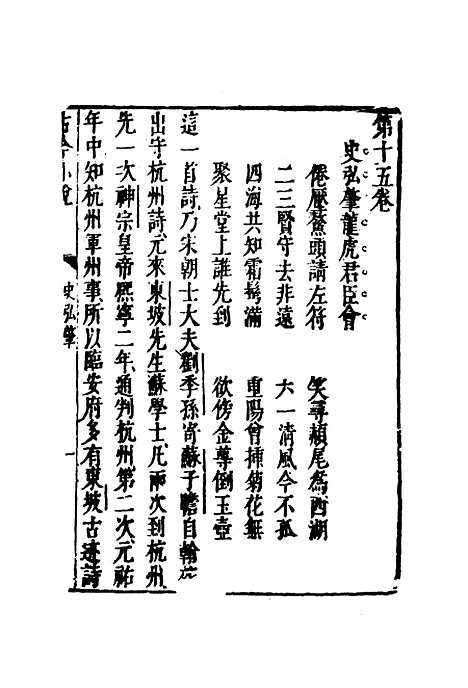 第十五卷
史弘肇龍虎君臣會
倦壓鰲頭請左符　笑尋頳尾爲西湖
二三賢守去非遠　六一清風今不孤
四海共知霜鬂滿　重陽曾挿菊花無
聚星堂上誰先到　欲傍金尊倒玉壺
這一首詩乃宋朝士大夫劉季孫寄蘇子瞻自翰
出守杭州詩元來東坡先生蘇學士凡兩次到杭州
先一次神宗皇帝熙寧二年通判杭州第二次元祐
年中知杭州軍州事所以臨安府多有東坡古迹詩
古今小說
史弘肇
一